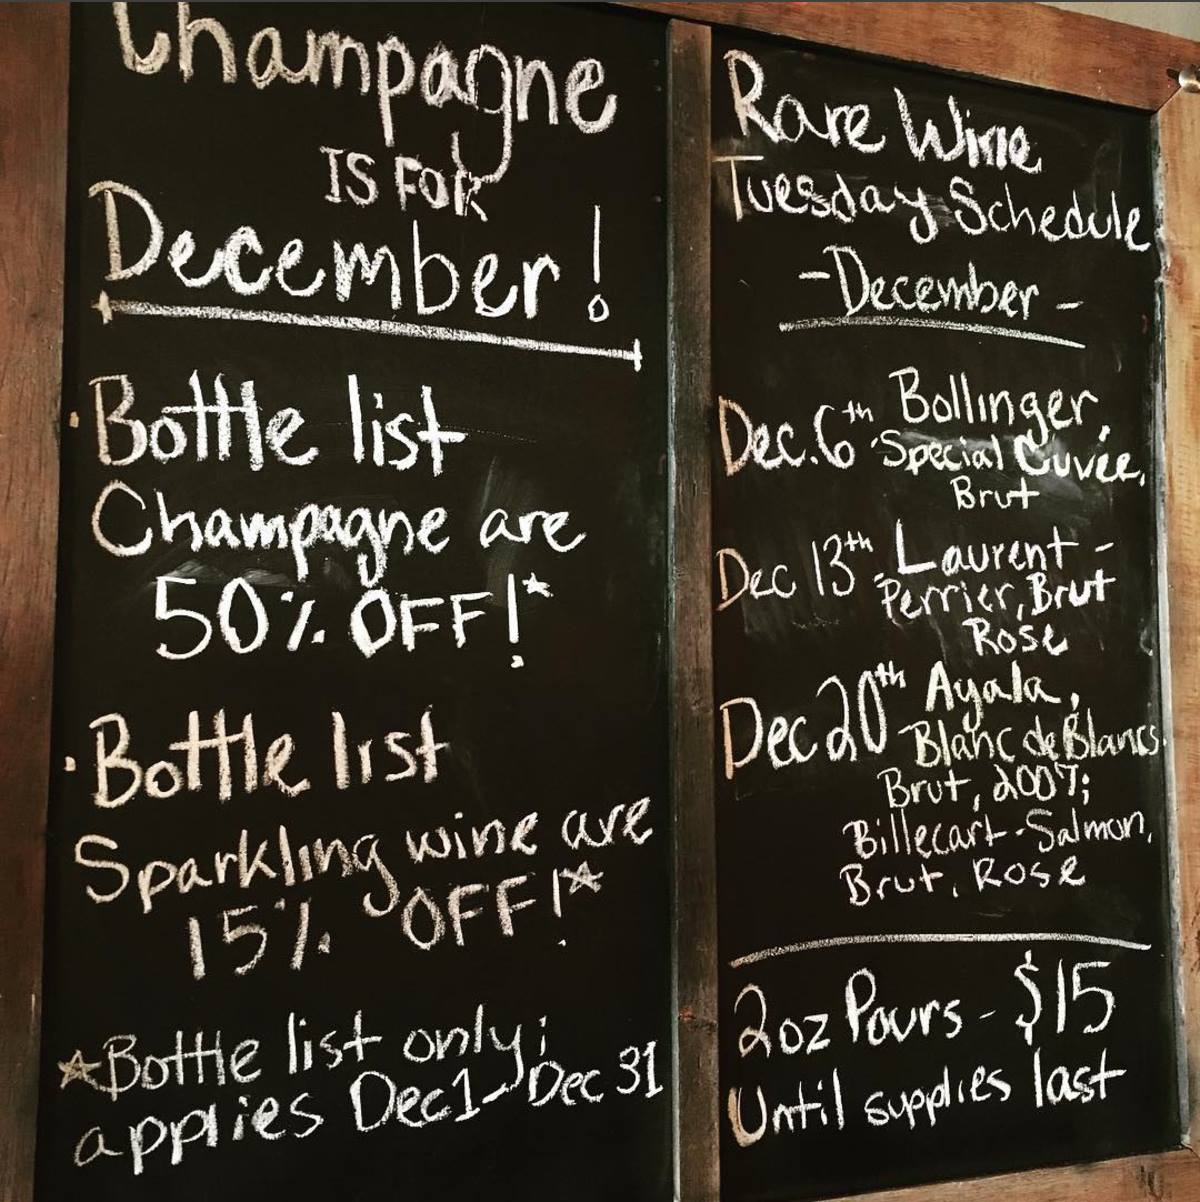 Champagne
IS FOR
December!
· Bottle list
Champagne are
50% OFF!*
· Bottle list
Sparkling wine are
15% OFF!*
*Bottle list only;
applies Dec1-Dec 31
Rare Wine
Tuesday Schedule
-December-
Dec.6th Bollinger,
Special Cuvée,
Brut
Dec 13th Laurent-
Perrier, Brut
Rose
Dec 20th Ayala,
Blanc de Blancs.
Brut, 2007;
Billecart-Salmon,
Brut, Rose
2oz Pours - $15
Until supplies last